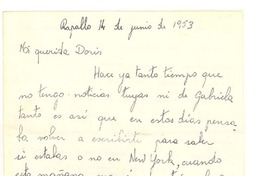 Rapallo 14 de junio de 1953
Mi querida Doris
Hace ya tanto tiempo que
no tengo noticias tuyas ni de Gabriela
tanto es así que en estos días pensa
ba volver a escribirte para saber
si estabas o no en New York, cuando
esta mañana